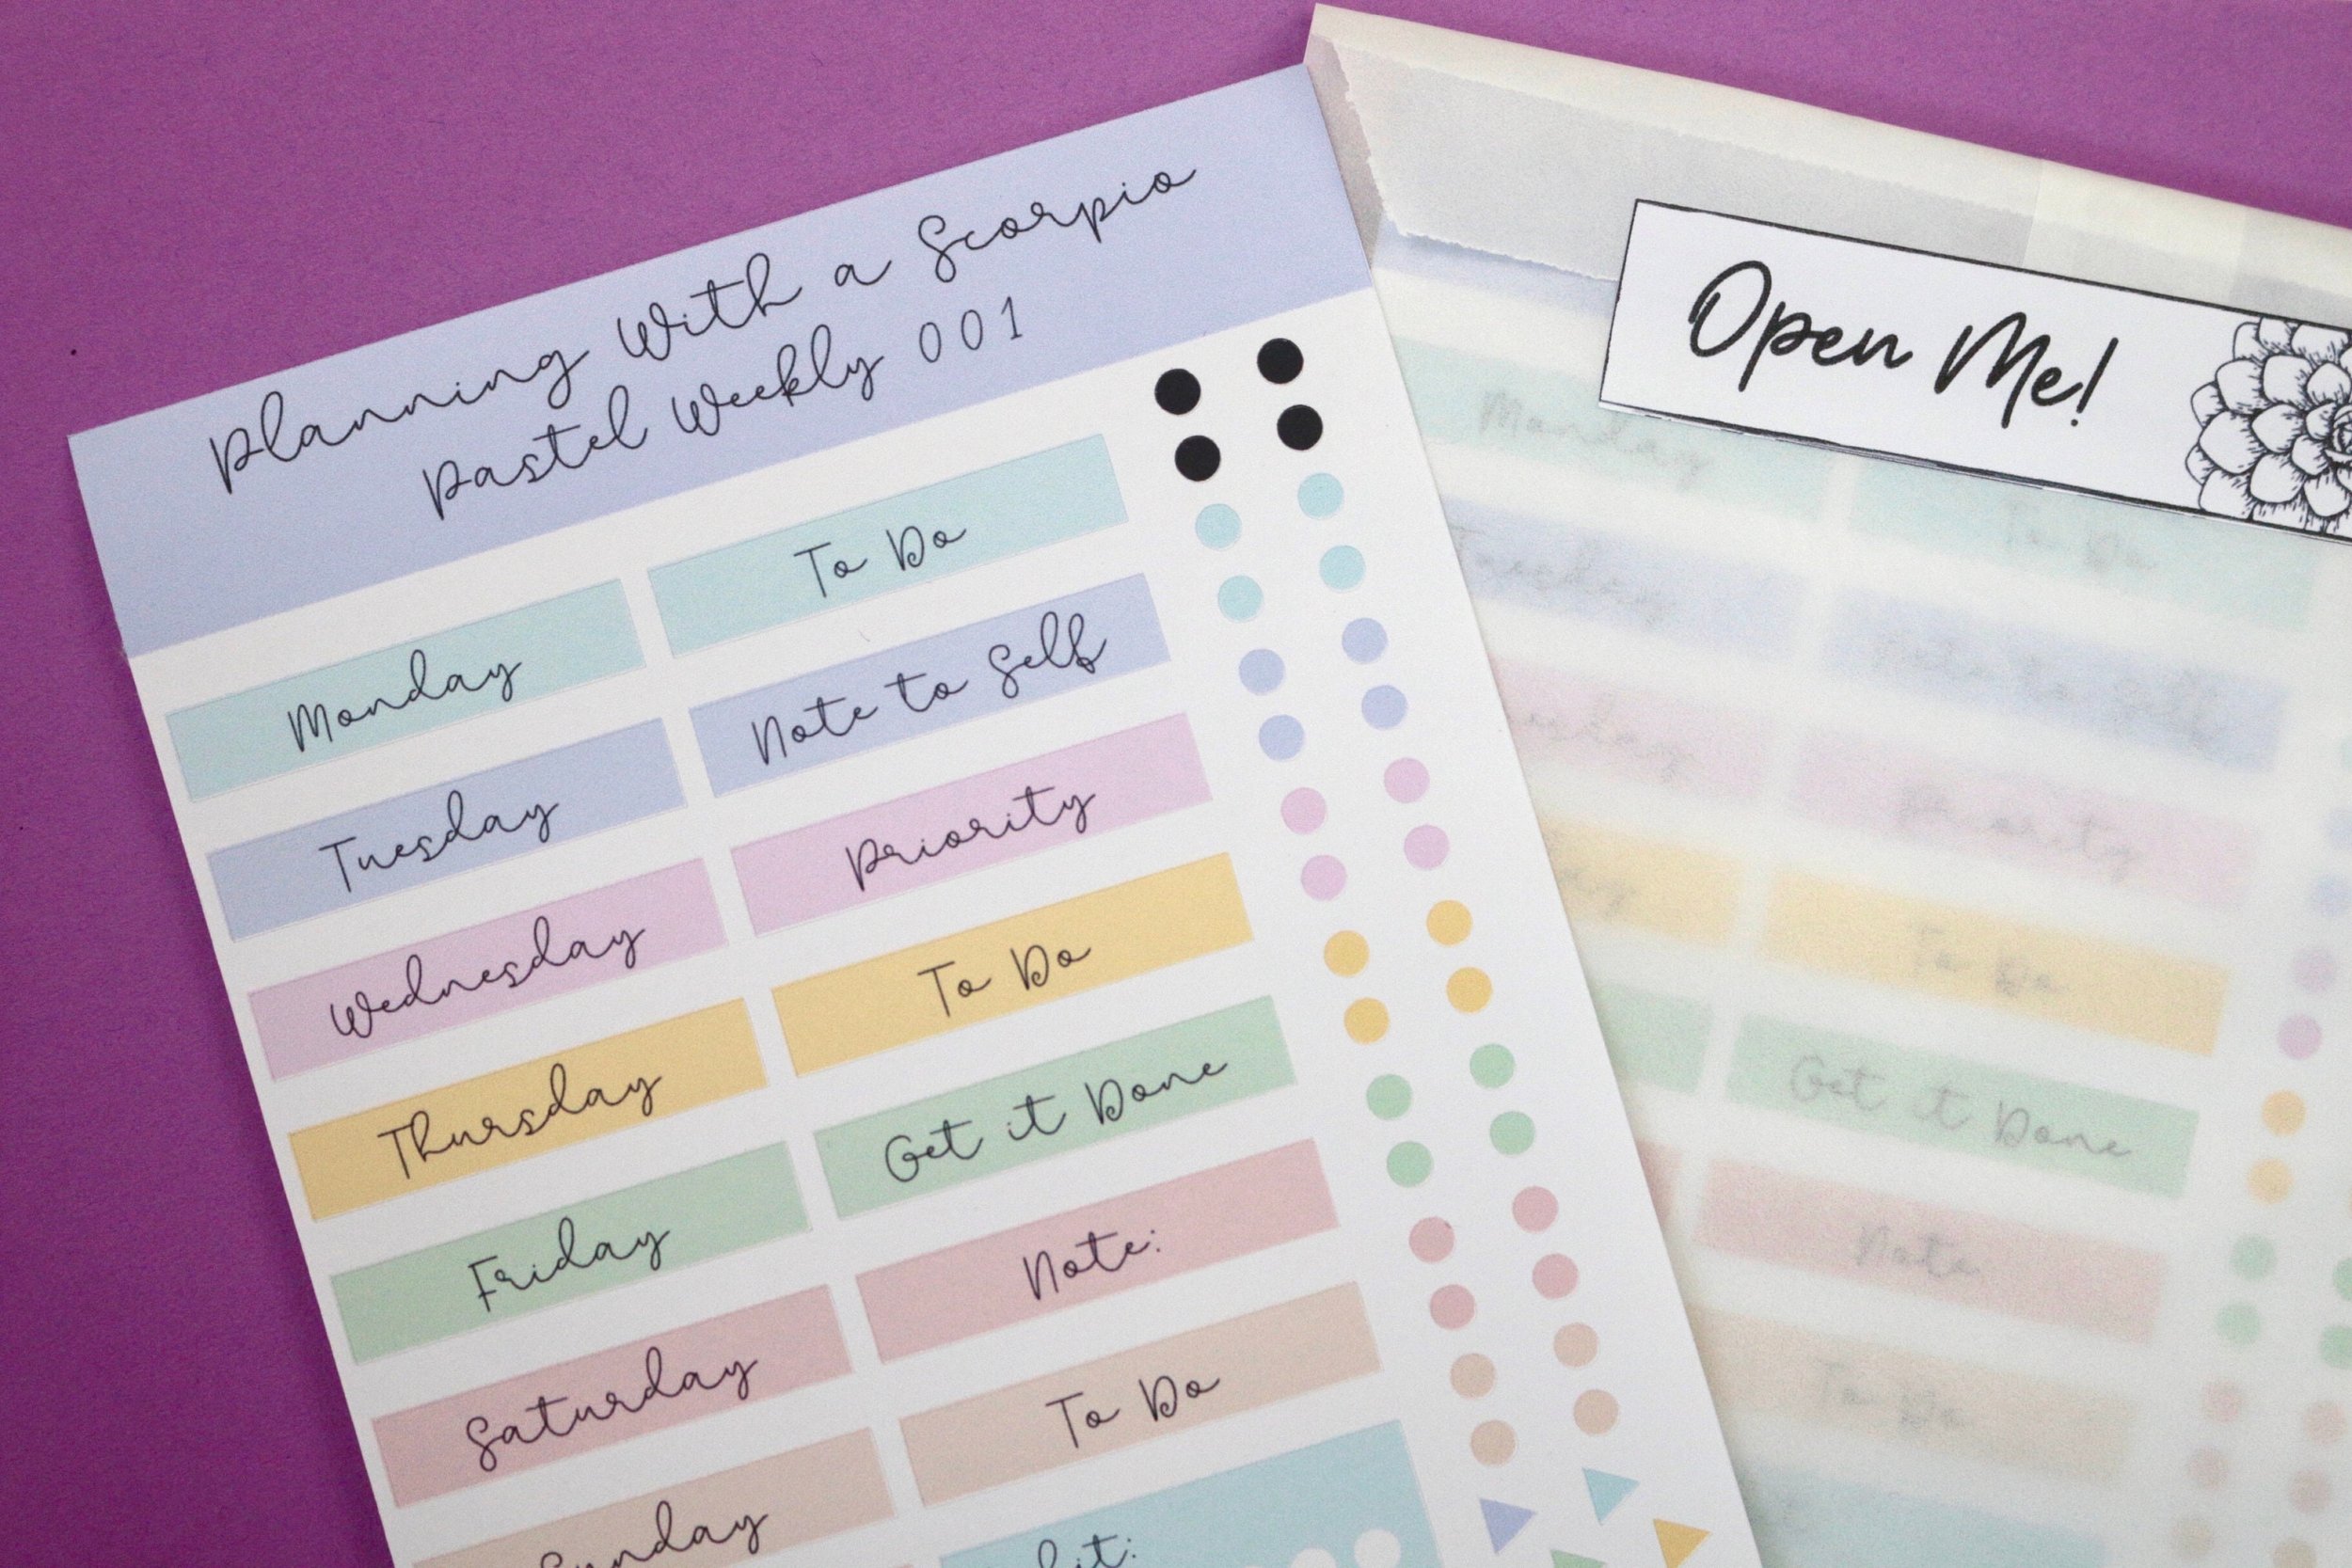 Planning With a Scorpio
Pastel Weekly 001
Monday
To Do
Tuesday
Note to Self
Wednesday
Priority
Thursday
To Do
Friday
Get it Done
Saturday
Note:
Sunday
To Do
Open Me!
Monday
To Do
Tuesday
Note to Self
Priority
To Do
Get it Done
Note
To Do